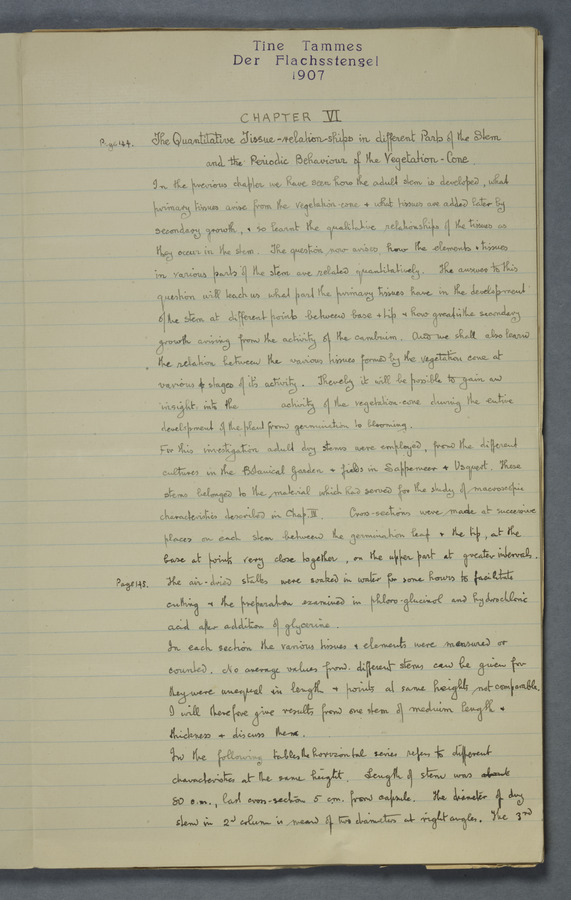 Tine Tammes
Der Flachsstengel
1907
CHAPTER VI
Page 144. The Quantitative Tissue-relation-ships in different Parts of the Stem
and the Periodic Behaviour of the Vegetation-Cone
In the previous chapter we have seen how the adult stem is developed, what
primary tissues arise from the vegetation-cone + what tissues are added later by
secondary growth, + so learnt the qualitative relationships of the tissues as
they occur in the stem. The question now arises, how the elements + tissues
in various parts of the stem are related quantitatively. The answer to this
question will teach us what part the primary tissues have in the development
of the stem at different points between base + tip + how great is the secondary
growth arising from the activity of the cambium. And we shall also learn
the relation between the various tissues formed by the vegetation cone at
various stages of its activity. Thereby it will be possible to gain an
insight into the activity of the vegetation-cone during the entire
development of the plant from germination to blooming.
For this investigation adult dry stems were employed, from the different
cultures in the Botanical Garden + fields in Sappemeer + Usquert. These
stems belonged to the material which had served for the study of macroscopic
characteristics described in Chap. III. Cross-sections were made at successive
places on each stem between the germination leaf + the tip, at the
base at points very close together, on the upper part at greater intervals.
Page 145. The air-dried stalks were soaked in water for some hours to facilitate
cutting + the preparation examined in phloro-glucinol and hydrochloric
acid after addition of glycerine.
In each section the various tissues + elements were measured or
counted. No average values from different stems can be given for
they were unequal in length + points at same heights not comparable.
I will therefore give results from one stem of medium length +
thickness + discuss them.
In the following tables the horizontal series refers to different
characteristics at the same height. Length of stem was about
80 c.m., last cross-section 5 cm. from capsule. The diameter of dry
stem in 2d column is mean of two diameters at right angles. The 3rd